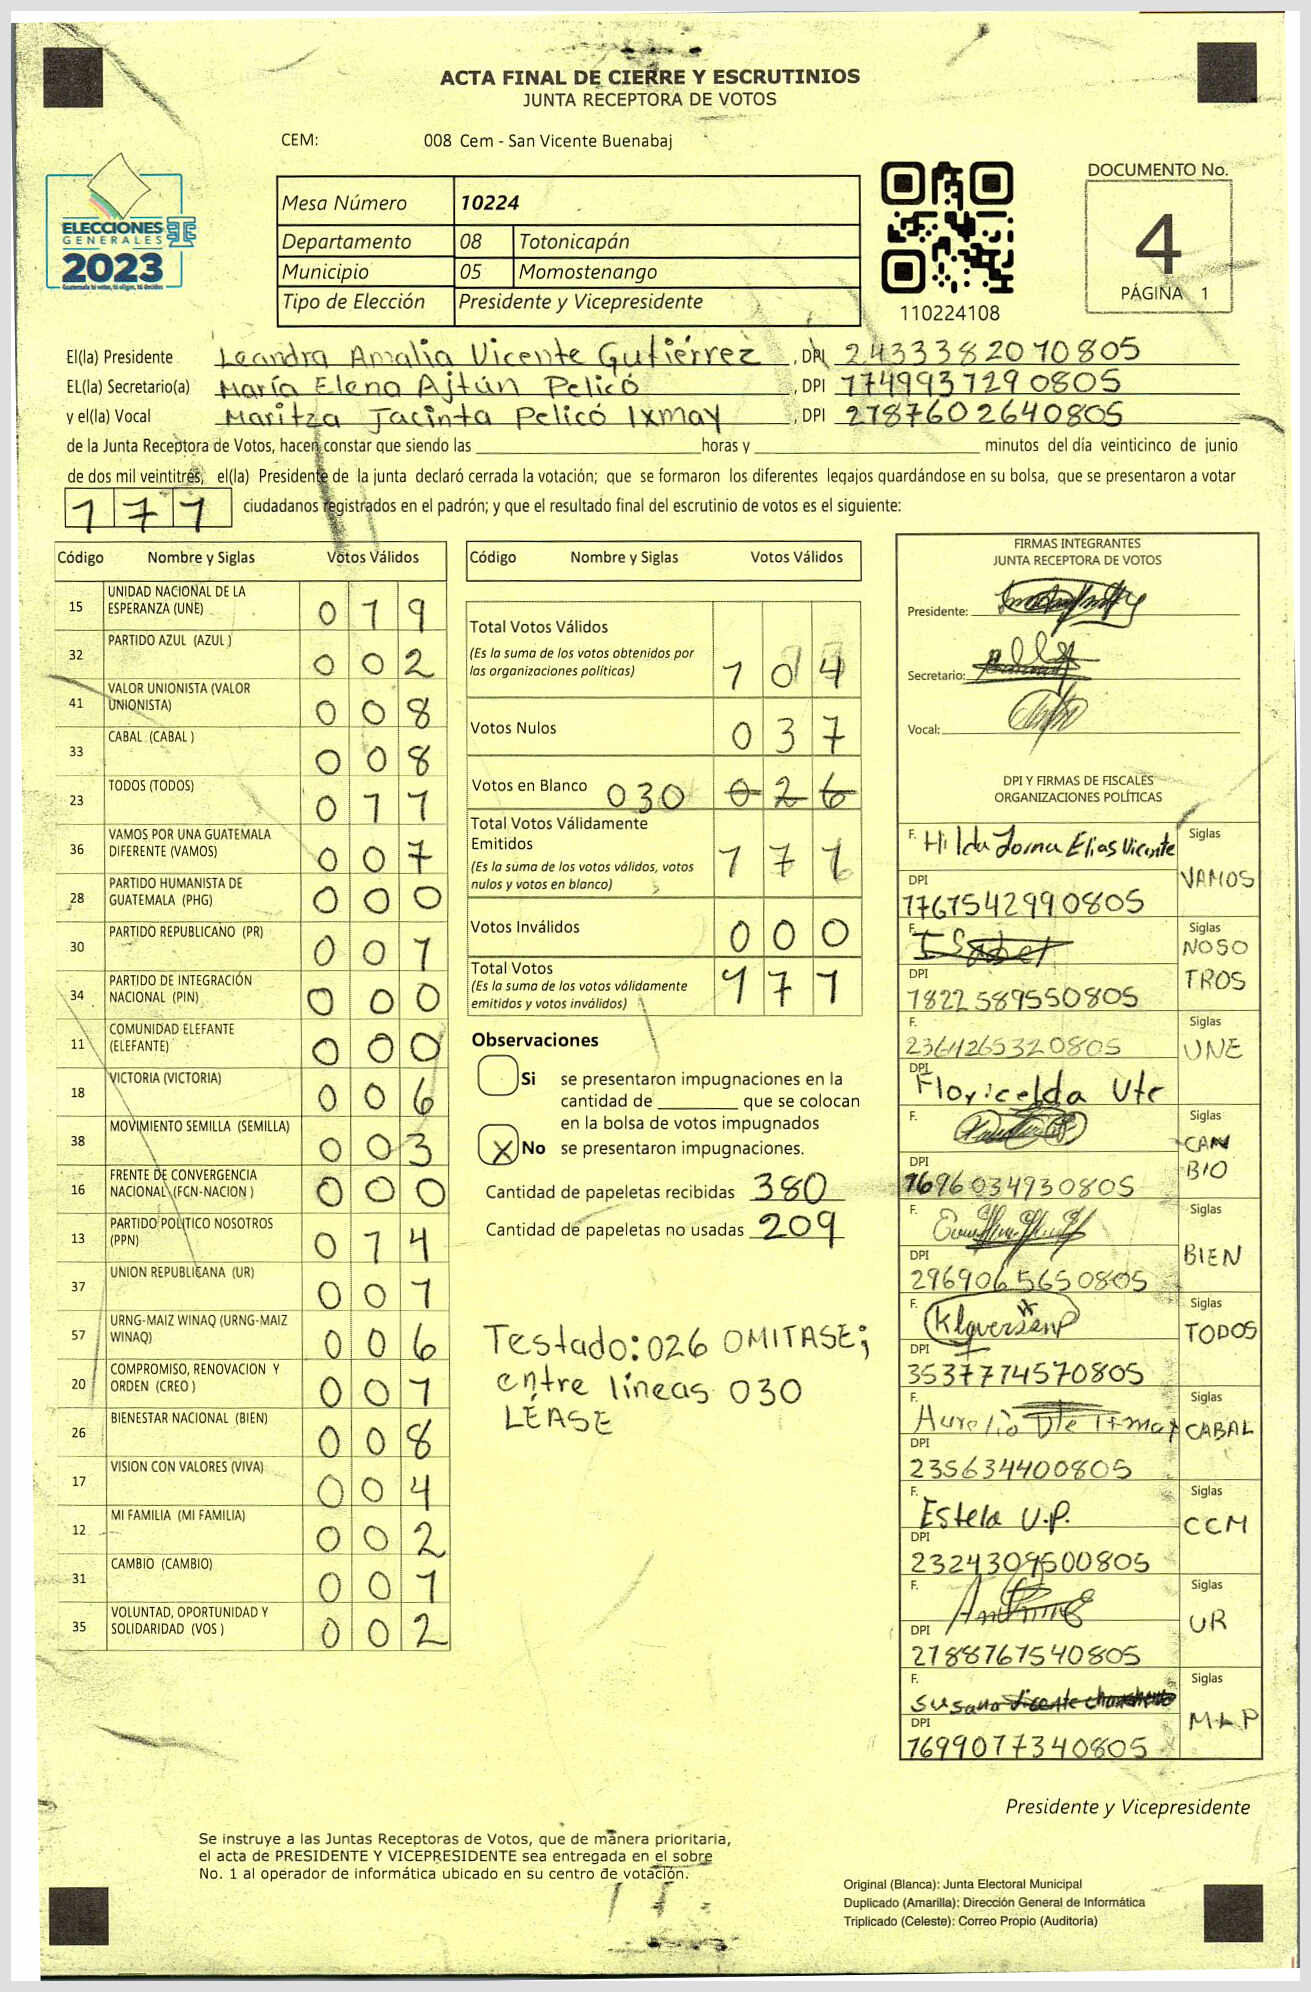 ACTA FINAL DE CIERRE Y ESCRUTINIOS
JUNTA RECEPTORA DE VOTOS
CEM: 008 Cem - San Vicente Buenabaj
ELECCIONES
GENERALES
2023
Guatemala tú votas, tú eliges, tú decides
Mesa Número 10224
Departamento 08 Totonicapán
Municipio 05 Momostenango
Tipo de Elección Presidente y Vicepresidente
110224108
DOCUMENTO No.
4
PÁGINA 1
El(la) Presidente Leandra Amalia Vicente Gutiérrez, DPI 2433382010805
EL(la) Secretario(a) María Elena Ajtún Pelicó, DPI 1749937290805
y el(la) Vocal Maritza Jacinta Pelicó Ixmay, DPI 2187602640805
de la Junta Receptora de Votos, hacen constar que siendo las ____ horas y ____ minutos del día veinticinco de junio
de dos mil veintitrés, el(la) Presidente de la junta declaró cerrada la votación; que se formaron los diferentes legajos quardándose en su bolsa, que se presentaron a votar
171 ciudadanos registrados en el padrón; y que el resultado final del escrutinio de votos es el siguiente:
Código Nombre y Siglas Votos Válidos
15 UNIDAD NACIONAL DE LA ESPERANZA (UNE) 019
32 PARTIDO AZUL (AZUL ) 002
41 VALOR UNIONISTA (VALOR UNIONISTA) 008
33 CABAL (CABAL ) 008
23 TODOS (TODOS) 011
36 VAMOS POR UNA GUATEMALA DIFERENTE (VAMOS) 007
28 PARTIDO HUMANISTA DE GUATEMALA (PHG) 000
30 PARTIDO REPUBLICANO (PR) 001
34 PARTIDO DE INTEGRACIÓN NACIONAL (PIN) 000
11 COMUNIDAD ELEFANTE (ELEFANTE) 000
18 VICTORIA (VICTORIA) 006
38 MOVIMIENTO SEMILLA (SEMILLA) 003
16 FRENTE DE CONVERGENCIA NACIONAL (FCN-NACION ) 000
13 PARTIDO POLITICO NOSOTROS (PPN) 014
37 UNION REPUBLICANA (UR) 001
57 URNG-MAIZ WINAQ (URNG-MAIZ WINAQ) 006
20 COMPROMISO, RENOVACION Y ORDEN (CREO ) 001
26 BIENESTAR NACIONAL (BIEN) 008
17 VISION CON VALORES (VIVA) 004
12 MI FAMILIA (MI FAMILIA) 002
31 CAMBIO (CAMBIO) 001
35 VOLUNTAD, OPORTUNIDAD Y SOLIDARIDAD (VOS ) 002
Código Nombre y Siglas Votos Válidos
Total Votos Válidos 104
(Es la suma de los votos obtenidos por
las organizaciones políticas)
Votos Nulos 037
Votos en Blanco 030 026
Total Votos Válidamente
Emitidos 171
(Es la suma de los votos válidos, votos
nulos y votos en blanco)
Votos Inválidos 000
Total Votos 171
(Es la suma de los votos válidamente
emitidos y votos inválidos)
Observaciones
Si se presentaron impugnaciones en la
cantidad de ____ que se colocan
en la bolsa de votos impugnados
X No se presentaron impugnaciones.
Cantidad de papeletas recibidas 380
Cantidad de papeletas no usadas 209
Testado: 026 OMITASE;
entre líneas 030
LÉASE
FIRMAS INTEGRANTES
JUNTA RECEPTORA DE VOTOS
Presidente:
Secretario:
Vocal:
DPI Y FIRMAS DE FISCALES
ORGANIZACIONES POLÍTICAS
F. Hilda Lorna Elias Vicente Siglas
DPI VAMOS
1761542990805
F. Isabel Siglas
DPI NOSOTROS
1822589550805
F. Siglas
2364265320805 UNE
DPI
Floricelda Vte
F. Siglas
DPI CANBIO
1696034930805
F. Siglas
DPI BIEN
2969065650805
F. Siglas
DPI TODOS
3537114570805
F. Aurelio Vte Siglas
DPI CABAL
235634400805
F. Estela V.P. Siglas
DPI CCM
2324309500805
F. Siglas
DPI UR
2188767540805
F. Susana Vicente Siglas
DPI MLP
1699077340805
Presidente y Vicepresidente
Se instruye a las Juntas Receptoras de Votos, que de manera prioritaria,
el acta de PRESIDENTE Y VICEPRESIDENTE sea entregada en el sobre
No. 1 al operador de informática ubicado en su centro de votación.
Original (Blanca): Junta Electoral Municipal
Duplicado (Amarilla): Dirección General de Informática
Triplicado (Celeste): Correo Propio (Auditoría)